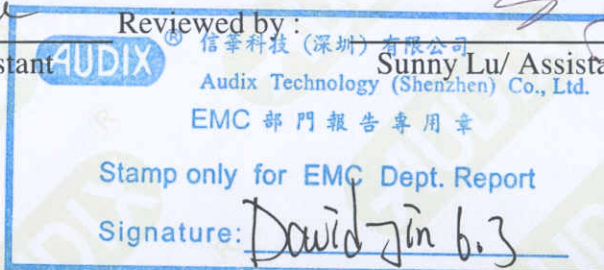 Reviewed by :
stant
Sunny Lu/ Assista
AUDIX®
信華科技 (深圳) 有限公司
Audix Technology (Shenzhen) Co., Ltd.
EMC 部門報告專用章
Stamp only for EMC Dept. Report
Signature: David Jin 6.3